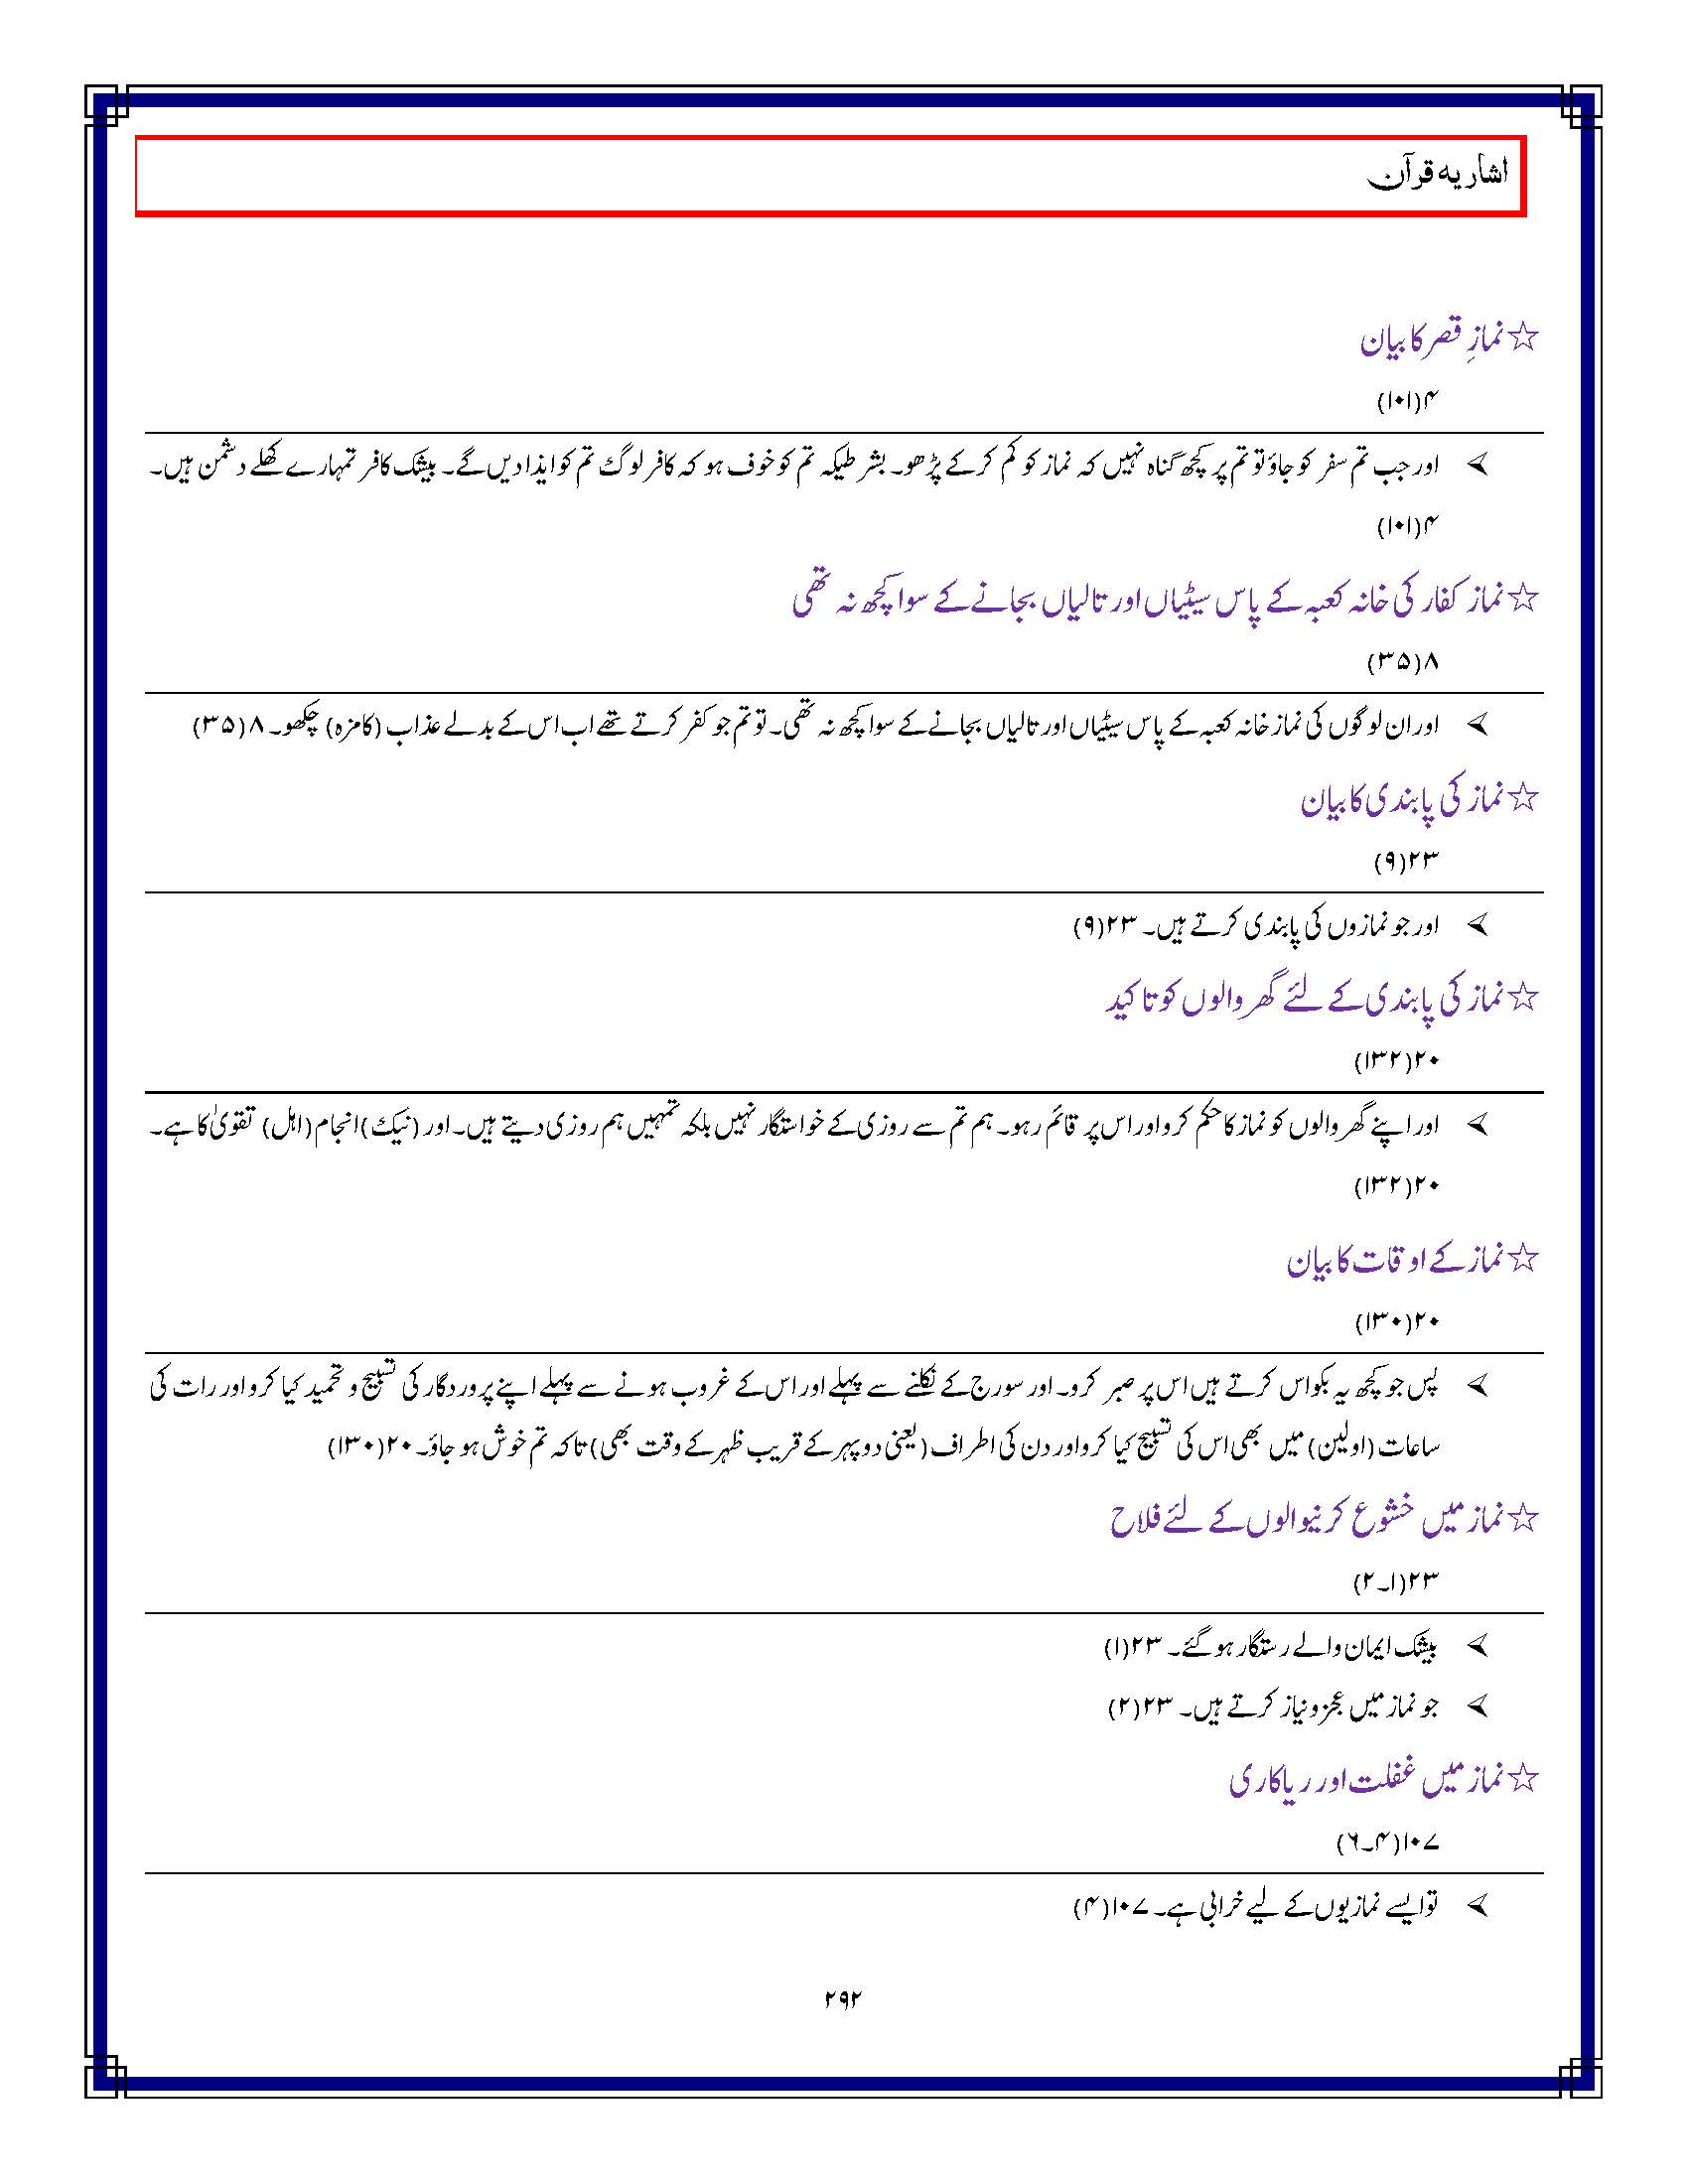 اشاریہ قرآن
☆نمازِ قصر کا بیان
۴(۱۰۱)
➢ اور جب تم سفر کو جاؤ تو تم پر کچھ گناہ نہیں کہ نماز کو کم کر کے پڑھو۔ بشرطیکہ تم کو خوف ہو کہ کافر لوگ تم کو ایذا دیں گے۔ بیشک کافر تمہارے کھلے دشمن ہیں۔
۴(۱۰۱)
☆نماز کفار کی خانہ کعبہ کے پاس سیٹیاں اور تالیاں بجانے کے سوا کچھ نہ تھی
۸(۳۵)
➢ اور ان لوگوں کی نماز خانہ کعبہ کے پاس سیٹیاں اور تالیاں بجانے کے سوا کچھ نہ تھی۔ تو تم جو کفر کرتے تھے اب اس کے بدلے عذاب (کا مزہ) چکھو۔ ۸(۳۵)
☆نماز کی پابندی کا بیان
۲۳(۹)
➢ اور جو نمازوں کی پابندی کرتے ہیں۔ ۲۳(۹)
☆نماز کی پابندی کے لئے گھر والوں کو تاکید
۲۰(۱۳۲)
➢ اور اپنے گھر والوں کو نماز کا حکم کرو اور اس پر قائم رہو۔ ہم تم سے روزی کے خواستگار نہیں بلکہ تمہیں ہم روزی دیتے ہیں۔ اور (نیک) انجام (اہل) تقویٰ کا ہے۔
۲۰(۱۳۲)
☆نماز کے اوقات کا بیان
۲۰(۱۳۰)
➢ پس جو کچھ یہ بکواس کرتے ہیں اس پر صبر کرو۔ اور سورج کے نکلنے سے پہلے اور اس کے غروب ہونے سے پہلے اپنے پروردگار کی تسبیح و تحمید کیا کرو اور رات کی
ساعات (اولین) میں بھی اس کی تسبیح کیا کرو اور دن کی اطراف (یعنی دوپہر کے قریب ظہر کے وقت بھی) تاکہ تم خوش ہو جاؤ۔ ۲۰(۱۳۰)
☆نماز میں خشوع کرنیوالوں کے لئے فلاح
۲۳(۱۔۲)
➢ بیشک ایمان والے رستگار ہو گئے۔ ۲۳(۱)
➢ جو نماز میں عجز و نیاز کرتے ہیں۔ ۲۳(۲)
☆نماز میں غفلت اور ریاکاری
۱۰۷(۴۔۶)
➢ تو ایسے نمازیوں کے لیے خرابی ہے۔ ۱۰۷(۴)
۲۹۲